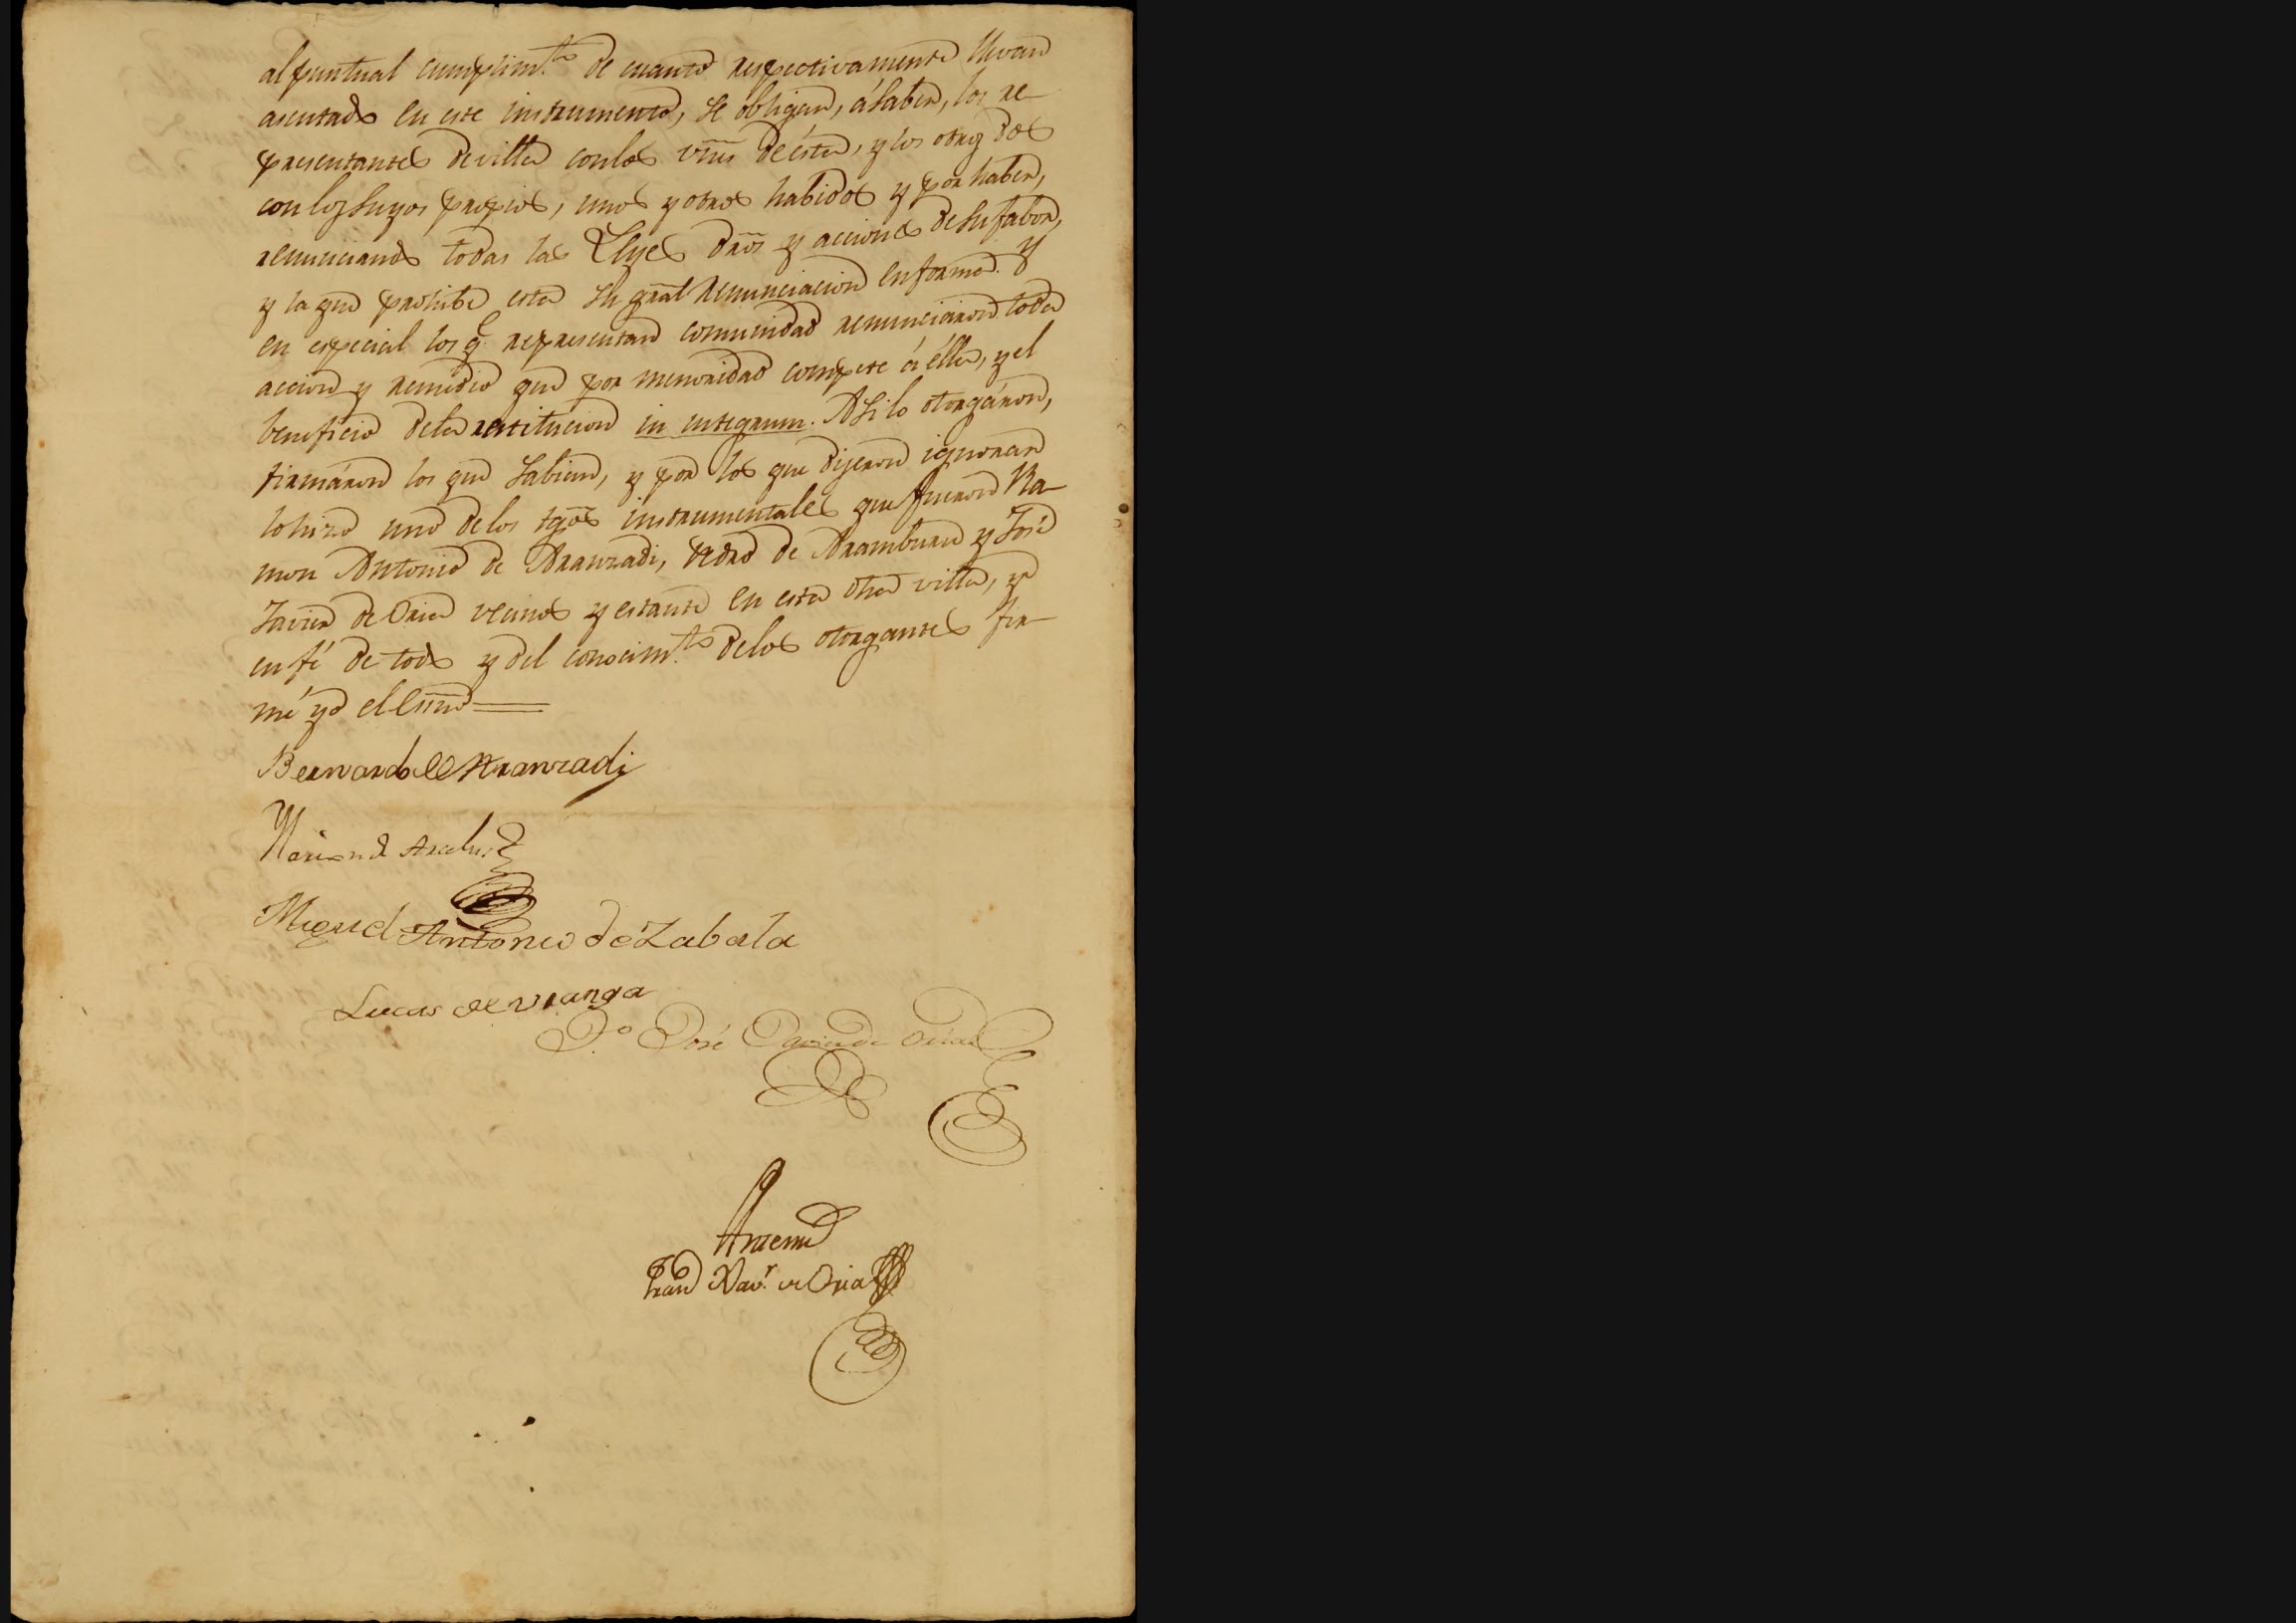 al puntual cumplim.to de cuanto respectivamente llevan
asentado en este instrumento, se obligan, á saber, los re-
presentantes de villa con los vnes de ésta, y los otros dos
con los suyos propios, unos y otros habidos y por haber,
renunciando todas las Leyes dros y acciones de su fabor,
y la que prohibe esta su gral renunciacion en forma. Y
en especial los q.e representan comunidad renunciaron toda
accion y remedio que por menoridad compete á ella, y el
beneficio de la restitucion in integrum. Asi lo otorgáron,
firmáron los que sabian, y por los que dijeron ignorar
lo hizo uno de los tgos instrumentales que fueron Ra-
mon Antonio de Aranzadi, Pedro de Aramburu y José
Javier de Oria vecinos y estante en esta dha villa, y
en fé de todo y del conocim.to de los otorgantes fir-
mé yo el Essno
Bernardo de Aranzadi
Mariano de
Miguel Antonio de Zabala
Lucas de Uranga
T.o José Javier de Oria
Antemi
Fran.co Xav.r de Oria